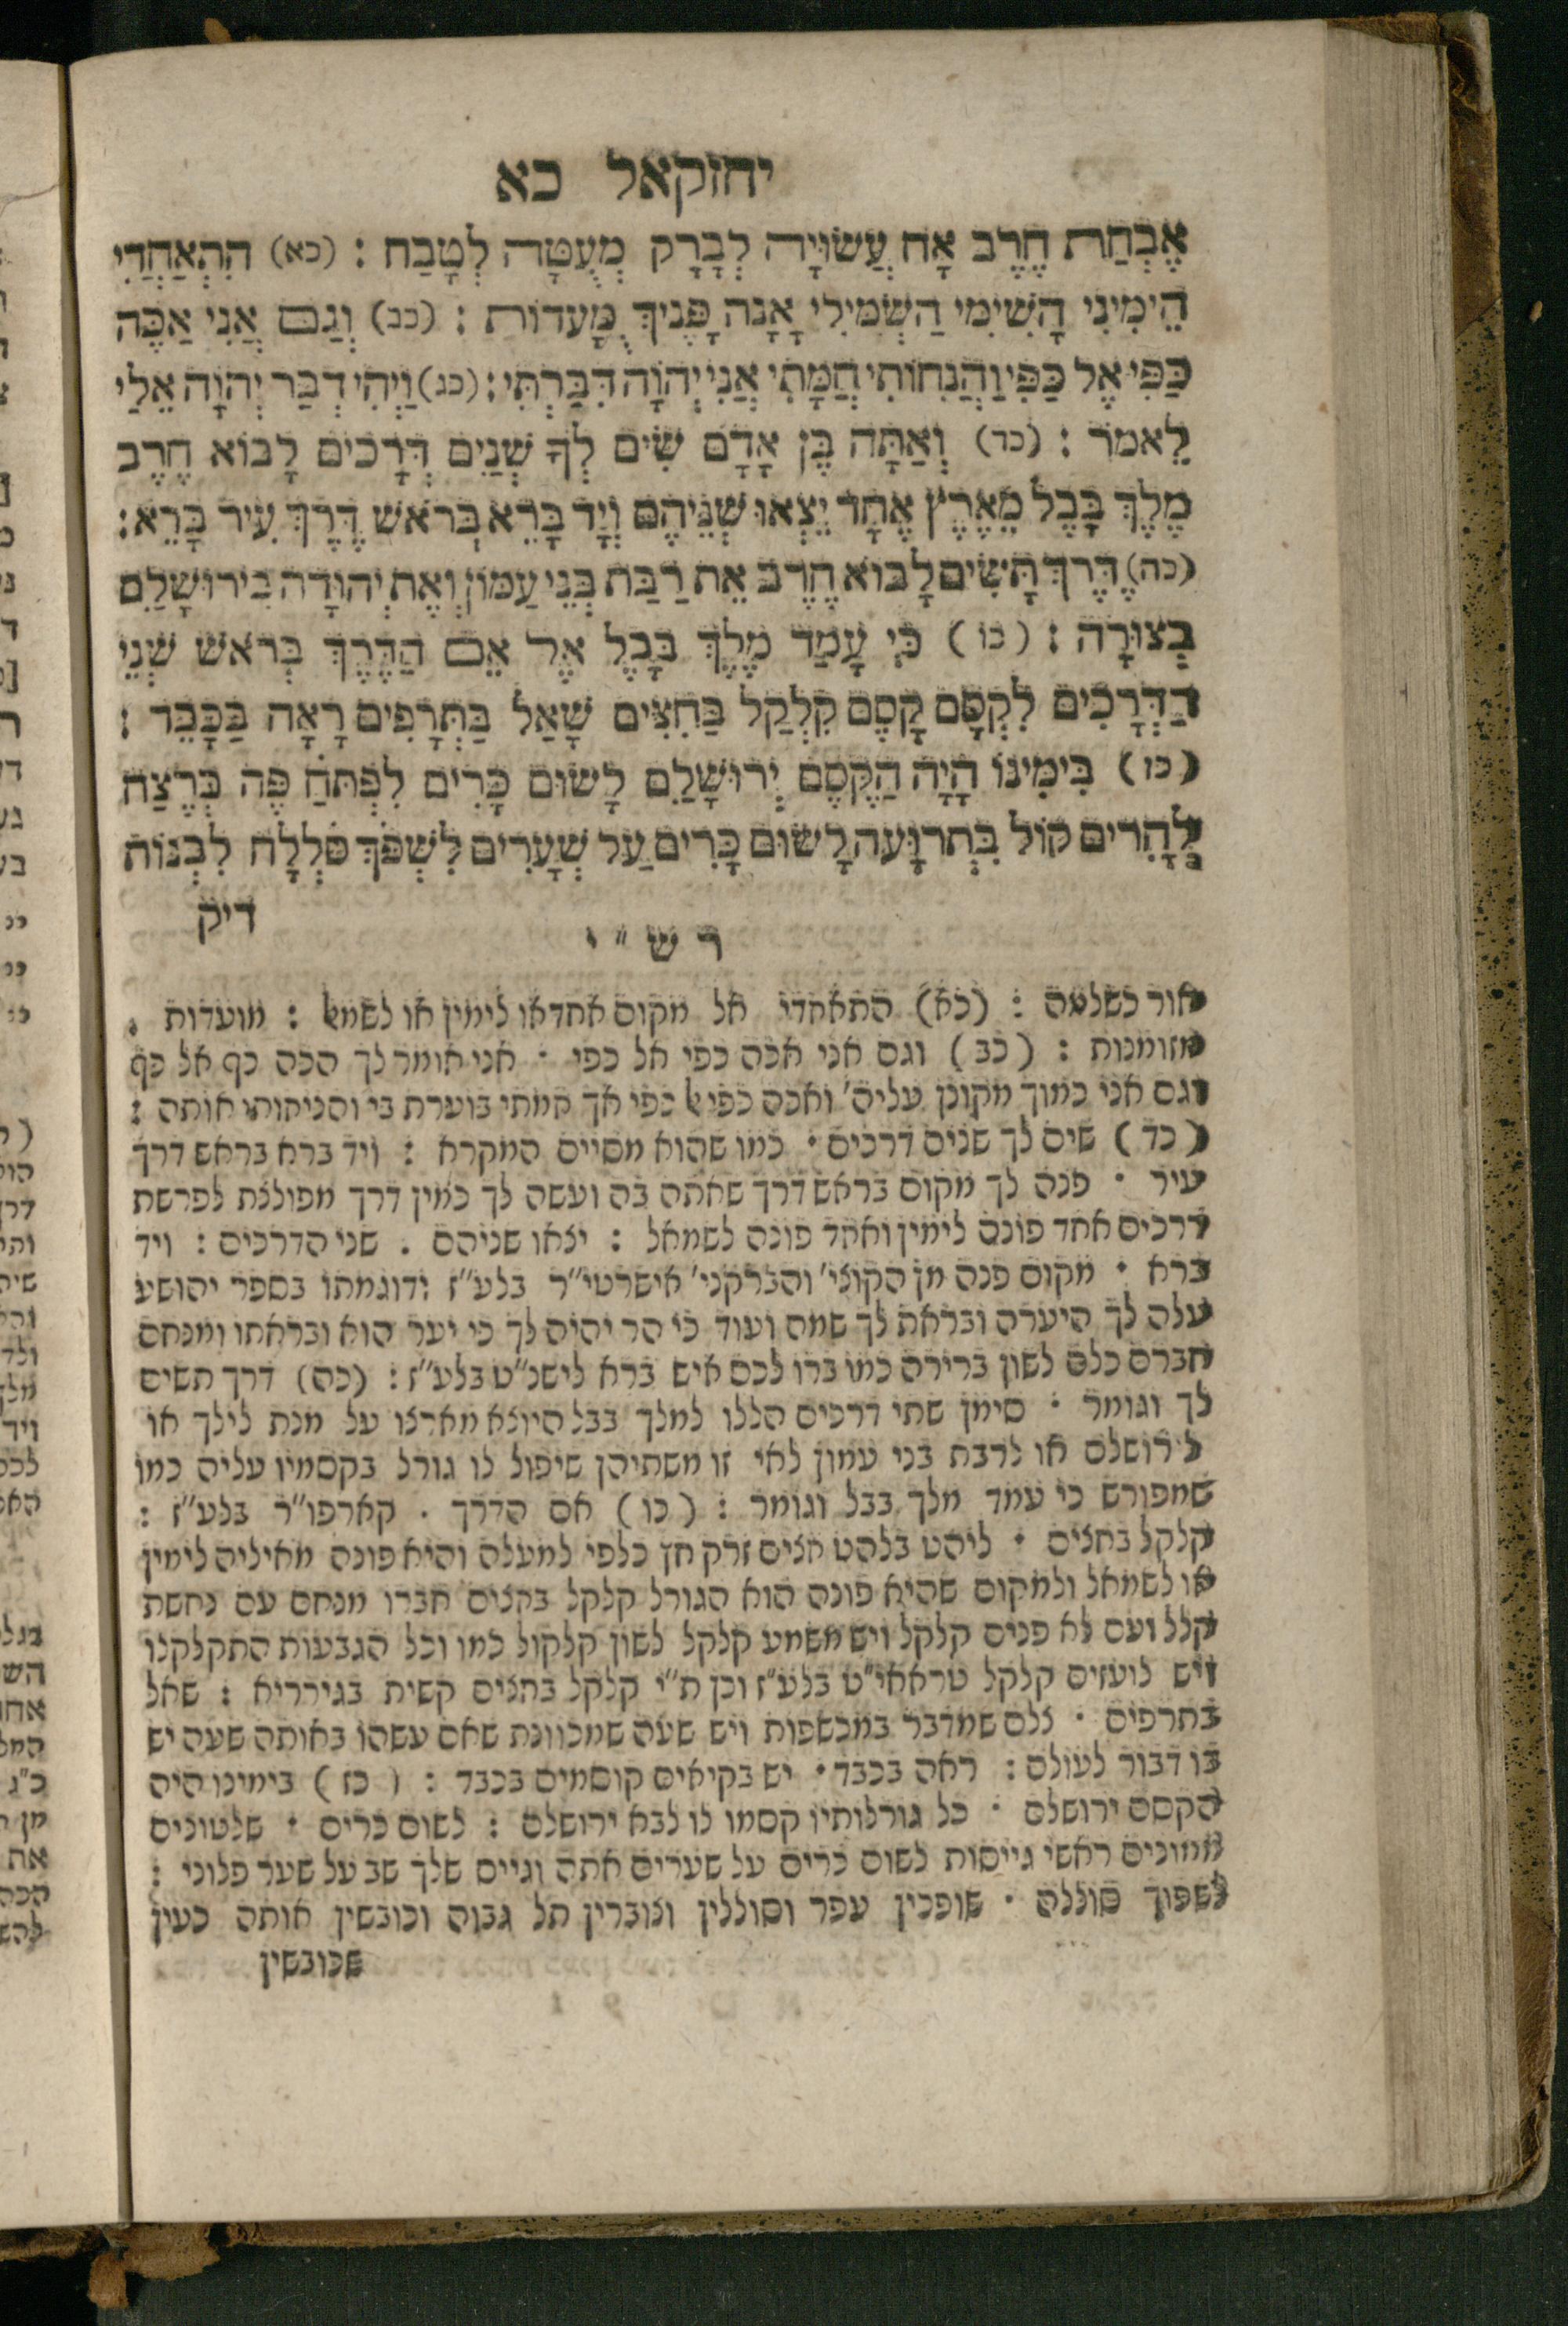 יחזקאל כא
אִבְחַת חֶרֶב אָח עֲשׂוּיָה לְבָרָק מְעֻטָּה לְטָבַח : (כא) הִתְאַחֲדִי
הֵימִינִי הָשִׂימִי הַשְׂמִילִי אָנָה פָּנַיִךְ מֻעָדוֹת : (כב) וְגַם אֲנִי אַכֶּה
כַּפִּי אֶל כַּפִּי וַהֲנִחוֹתִי חֲמָתִי אֲנִי יְהוָֹה דִּבַּרְתִּי : (כג) וַיְהִי דְבַר יְהוָֹה אֵלַי
לֵאמֹר : (כד) וְאַתָּה בֶן אָדָם שִׂים לְךָ שְׁנַיִם דְּרָכִים לָבוֹא חֶרֶב
מֶלֶךְ בָּבֶל מֵאֶרֶץ אֶחָד יֵצְאוּ שְׁנֵיהֶם וְיָד בָּרֵא בְּרֹאשׁ דֶּרֶךְ עִיר בָּרֵא :
(כה) דֶּרֶךְ תָּשִׂים לָבוֹא חֶרֶב אֵת רַבַּת בְּנֵי עַמּוֹן וְאֶת יְהוּדָה בִירוּשָׁלַםִ
בְּצוּרָה : (כו) כִּי עָמַד מֶלֶךְ בָּבֶל אֶל אֵם הַדֶּרֶךְ בְּרֹאשׁ שְׁנֵי
הַדְּרָכִים לִקְסָם קָסֶם קִלְקַל בַּחִצִּים שָׁאַל בַּתְּרָפִים רָאָה בַּכָּבֵד :
(כז) בִּימִינוֹ הָיָה הַקֶּסֶם יְרוּשָׁלַםִ לָשׂוּם כָּרִים לִפְתֹּחַ פֶּה בְּרֶצַח
לְהָרִים קוֹל בִּתְרוּעָה לָשׂוּם כָּרִים עַל שְׁעָרִים לִשְׁפֹּךְ סֹלְלָה לִבְנוֹת
דיק
רש"י
אור כשלמה : (כא) התאחדי אל מקום אחד או לימין או לשמאל : מועדות .
מזומנות : (כב) וגם אני אכה כפי אל כפי · אני אומר לך הכה כף אל כף
וגם אני כמוך מקונן עליה' ואכה כפי אל כפי אך חמתי בוערת בי והניחותי אותה :
(כד) שים לך שנים דרכים · כמו שהוא מסיים המקרא : ויד ברא בראש דרך
עיר · פנה לך מקום בראש דרך שאתה בה ועשה לך כמין דרך מפולגת לפרשת
דרכים אחד פונה לימין ואחד פונה לשמאל : יצאו שניהם . שני הדרכים : ויד
ברא · מקום פנה מן הקוצי' והברקני' אישרטי"ר בלע"ז ודוגמתו בספר יהושע
עלה לך היערה ובראת לך שמה ועוד כי הר יהיה לך כי יער הוא ובראתו ומנחם
חברם כלם לשון ברירה כמו ברו לכם איש ברא לישנ"ט בלע"ז : (כה) דרך תשים
לך וגומר · סימן שתי דרכים הללו למלך בבל היוצא מארצו על מנת לילך או
לירושלם או לרבת בני עמון לאי זו משתיהן שיפול לו גורל בקסמיו עליה כמו
שמפורש כי עמד מלך בבל וגומר : (כו) אם הדרך . קארפו"ר בלע"ז :
קלקל בחצים · ליהט בלהט חצים זרק חץ כלפי למעלה והיא פונה מאיליה לימין
או לשמאל ולמקום שהיא פונה הוא הגורל קלקל בחצים חברו מנחם עם נחשת
קלל ועם לא פנים קלקל ויש משמע קלקל לשון קלקול כמו וכל הגבעות התקלקלו
ויש לועזים קלקל טראאי"ט בלע"ז וכן ת"י קלקל בחצים קשית בגירריא : שאל
בתרפים · צלם שמדבר במכשפות ויש שעה שמכוונת שאם עשהו באותה שעה יש
בו דבור לעולם : ראה בכבד · יש בקיאים קוסמים בכבד : (כז) בימינו היה
הקסם ירושלם · כל גורלותיו קסמו לו לבא ירושלם : לשום כרים · שלטונים
ממונים ראשי גייסות לשום כרים על שערים אתה וגייס שלך שב על שער פלוני :
לשפוך סוללה · שופכין עפר וסוללין וצוברין תל גבוה וכובשין אותה כעין
שכובשין